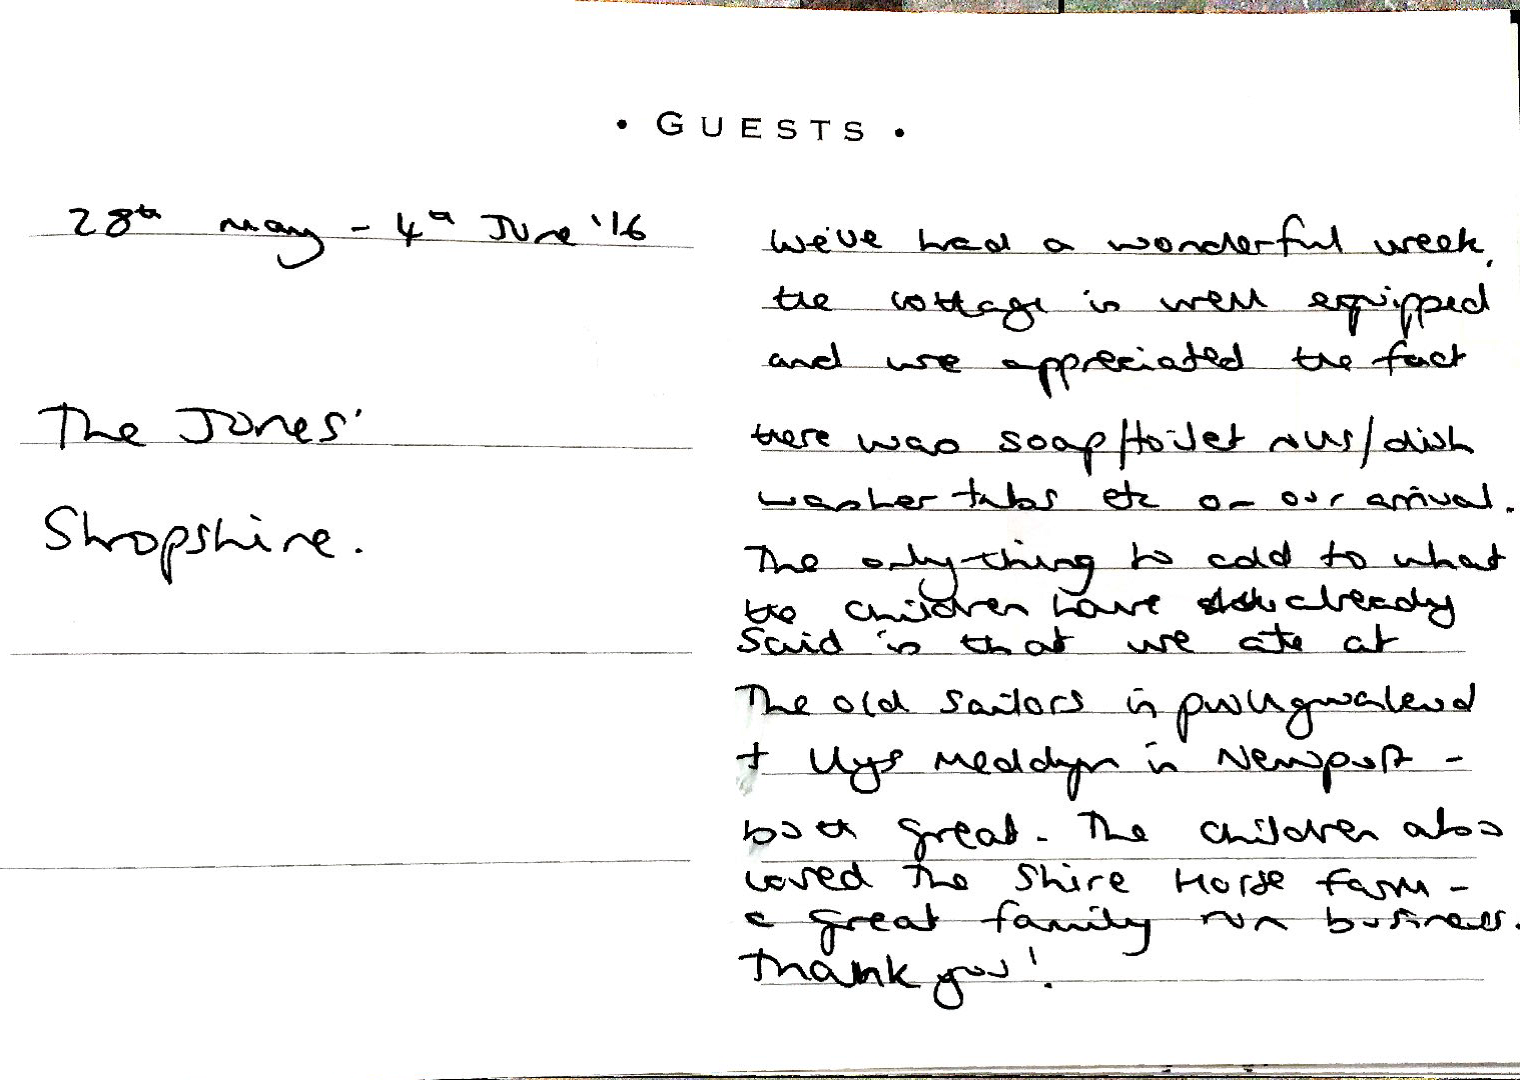 • GUESTS •
28th May - 4th June '16
The Jones'
Shropshire.
We've had a wonderful week,
the cottage is well equipped
and we appreciated the fact
there was soap/toilet rolls/dish
washer tabs etc on our arrival.
The only thing to add to what
the children have already
said is that we ate at
The Old Sailors in pwllgwaelod
+ Llys Meddyg in Newport -
both great. The children also
loved the Shire Horse Farm -
a great family run business.
Thank you!